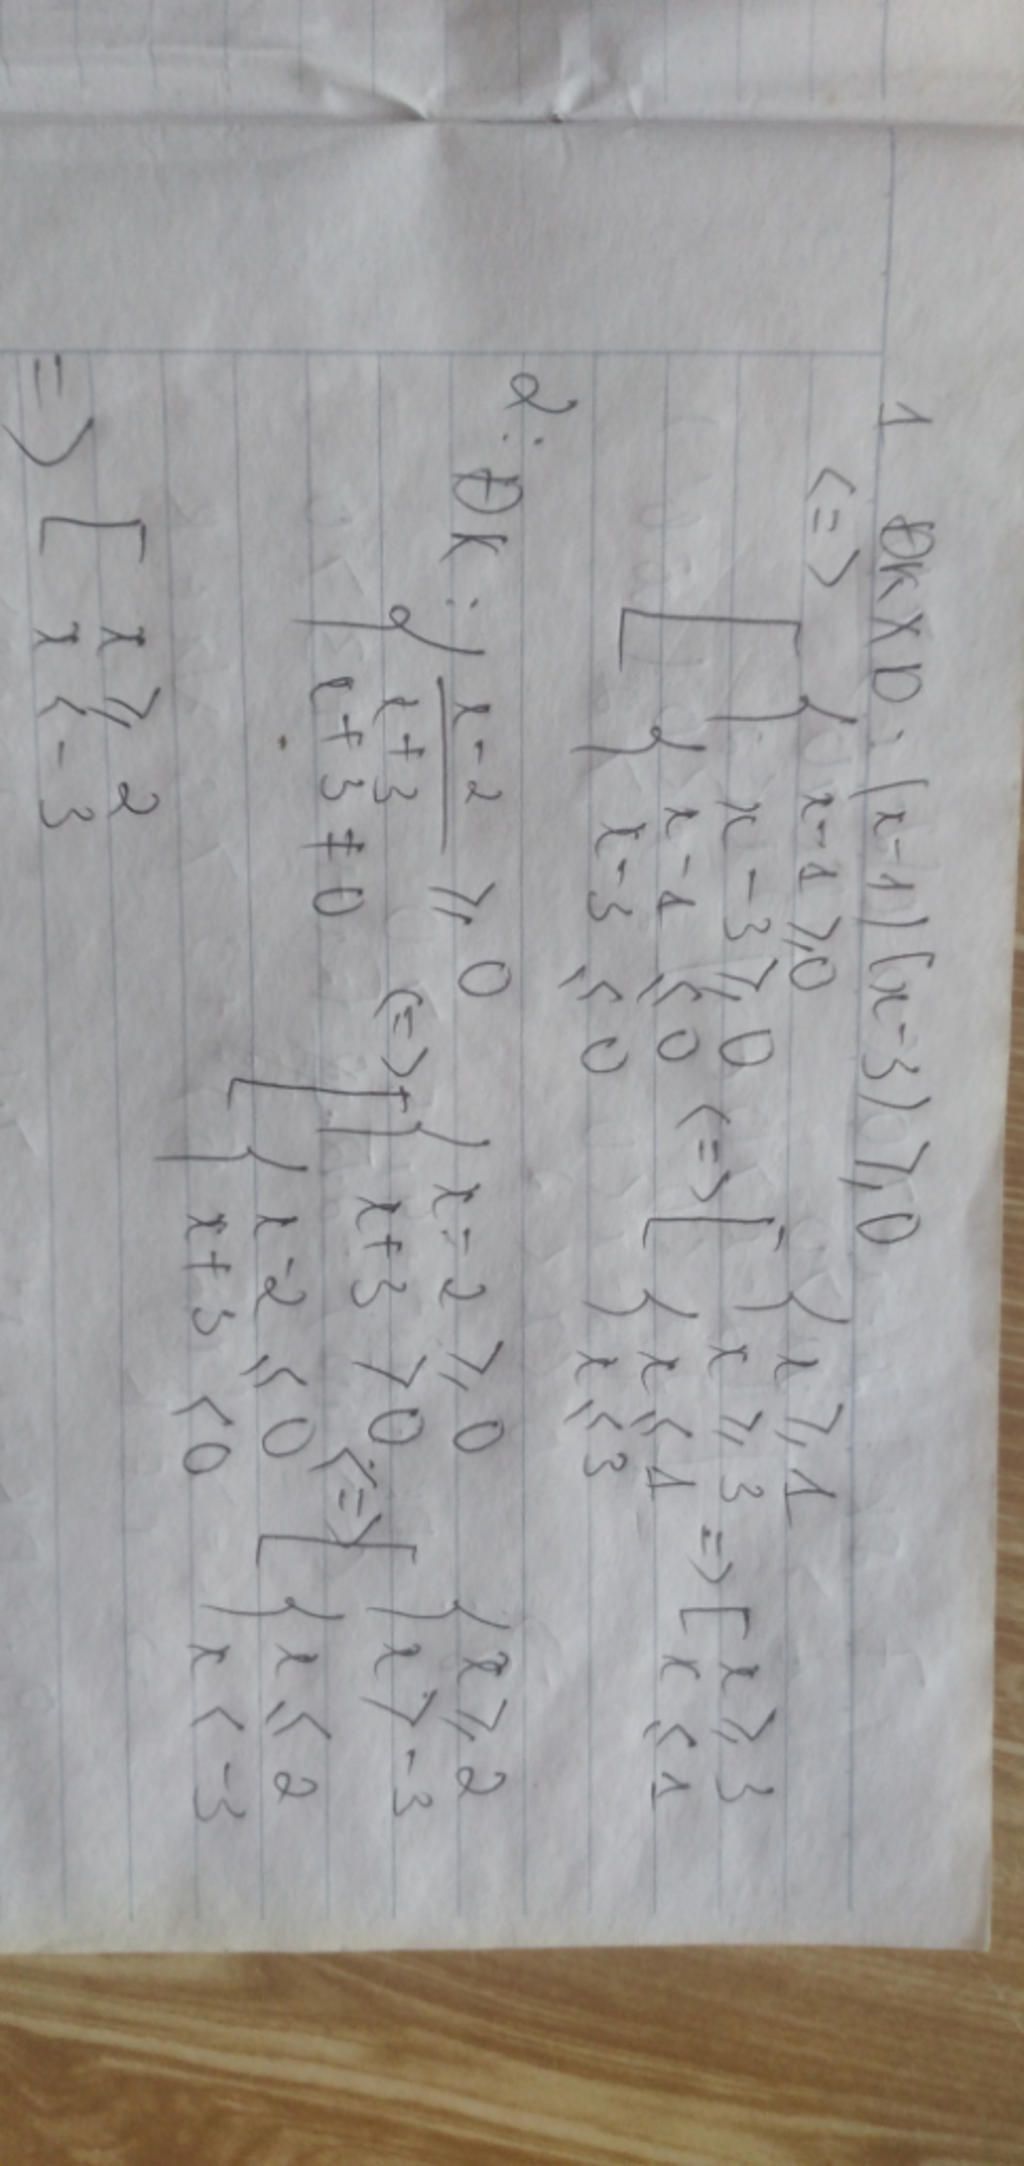 1 ĐKXĐ: (x-1)(x-3) ⩾ 0
<=> [ { x-1 ⩾ 0
x-3 ⩾ 0
{ x-1 ⩽ 0
x-3 ⩽ 0
<=> [ { x ⩾ 1
x ⩾ 3
{ x ⩽ 1
x ⩽ 3
=> [ x ⩾ 3
x ⩽ 1
2: ĐK: { x-2 / x+3 ⩾ 0
x+3 ≠ 0
<=> [ { x-2 ⩾ 0
x+3 > 0
{ x-2 ⩽ 0
x+3 < 0
<=> [ { x ⩾ 2
x > -3
{ x ⩽ 2
x < -3
=> [ x ⩾ 2
x < -3